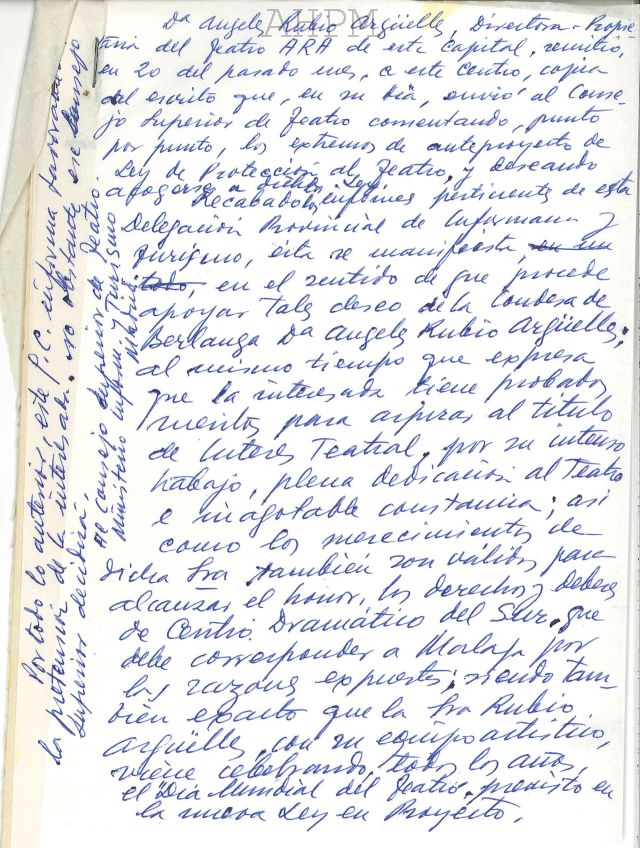 AHPM
Dª Angeles Rubio Argüelles, Directora-Propie-
taria del Teatro ARA de esta Capital, remitió,
en 20 del pasado mes, a este Centro, copia
del escrito que, en su día, envió al Conse-
jo Superior de Teatro comentando, punto
por punto, los extremos de anteproyecto de
Ley de Protección al Teatro, y deseando
apogerse a dicha Ley.
Recabados informes pertinentes de esta
Delegación Provincial de Informacn y
Turismo, ésta se manifiesta, en un
todo, en el sentido de que procede
apoyar tales deseo de la Condesa de
Berlanga Dª Angeles Rubio Argüelles,
al mismo tiempo que expresa
que la interesada tiene probados
méritos para aspirar al título
de Interés Teatral, por su intenso
trabajo, plena dedicación al Teatro
e inagotable constancia; así
como los merecimientos de
dicha Sra también son válidos para
alcanzar el honor, los derechos y deberes
de Centro Dramático del Sur, que
debe corresponder a Malaga por
las razones expuestas; siendo tam-
bién exacto que la Sra Rubio
Argüelles, con su equipo artístico,
viene celebrando, todos los años,
el "Dia Mundial del Teatro, previsto en
la nueva Ley en Proyecto.
Por todo lo anterior, este P.C. informa
la pretensión de la interesada. No obstante ese Consejo
Superior decidirá.
Al Consejo Superior de Teatro.
Ministerio Informn y Turismo
Madrid.